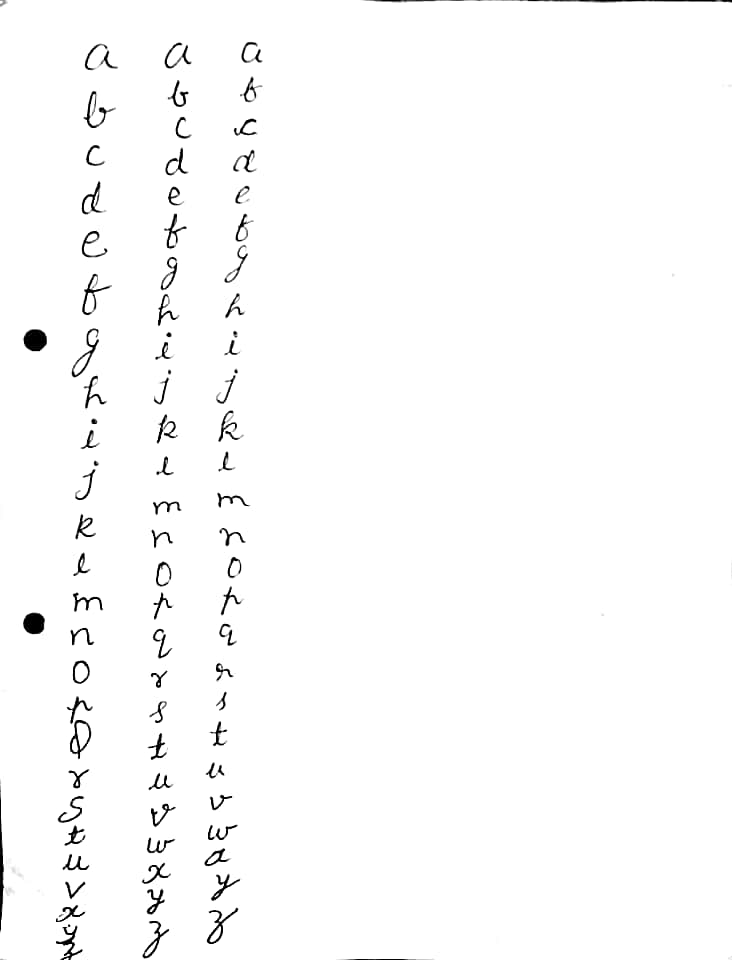 a
b
c
d
e
f
g
h
i
j
k
l
m
n
o
p
Q
r
s
t
u
v
x
y
z
a
b
c
d
e
f
g
h
i
j
k
l
m
n
o
p
q
r
s
t
u
v
w
x
y
z
a
b
c
d
e
f
g
h
i
j
k
l
m
n
o
p
q
r
s
t
u
v
w
x
y
z